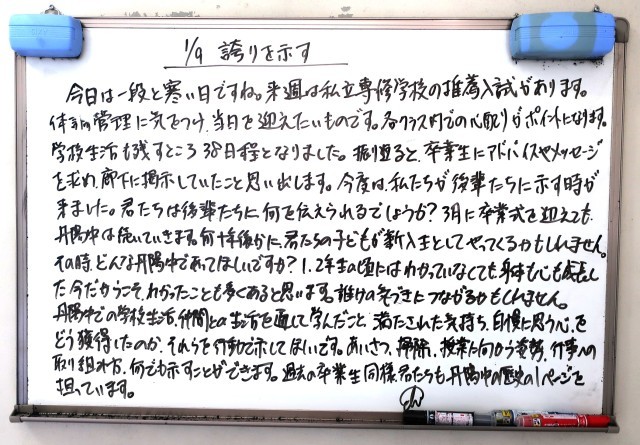 1/9 誇りを示す
今日は一段と寒い日ですね。来週は私立専修学校の推薦入試があります。
体調管理に気をつけ、当日を迎えたいものです。各クラス内での心配りがポイントになります。
学校生活も残すところ38日程となりました。振り返ると、卒業生にアドバイスやメッセージ
を求め、廊下に掲示していたことを思い出します。今度は、私たちが後輩たちに示す時が
来ました。君たちは後輩たちに何を伝えられるでしょうか?3月に卒業式を迎えても、
丹陽中は続いていきます。何十年後かに、君たちの子どもが新入生としてやってくるかもしれません。
その時、どんな丹陽中であってほしいですか?1、2年生の頃にはわかっていなくても、身体も心も成長し
た今だからこそ、わかったことも多くあると思います。誰かの気づきにつながるかもしれません。
丹陽中での学校生活、仲間との生活を通して学んだこと、満たされた気持ち、自慢に思う心を
どう獲得したのか、それらを行動で示してほしいです。あいさつ、掃除、授業に向かう姿勢、行事への
取り組み方、何でも示すことができます。過去の卒業生同様、君たちも、丹陽中の歴史の1ページを
担っています。